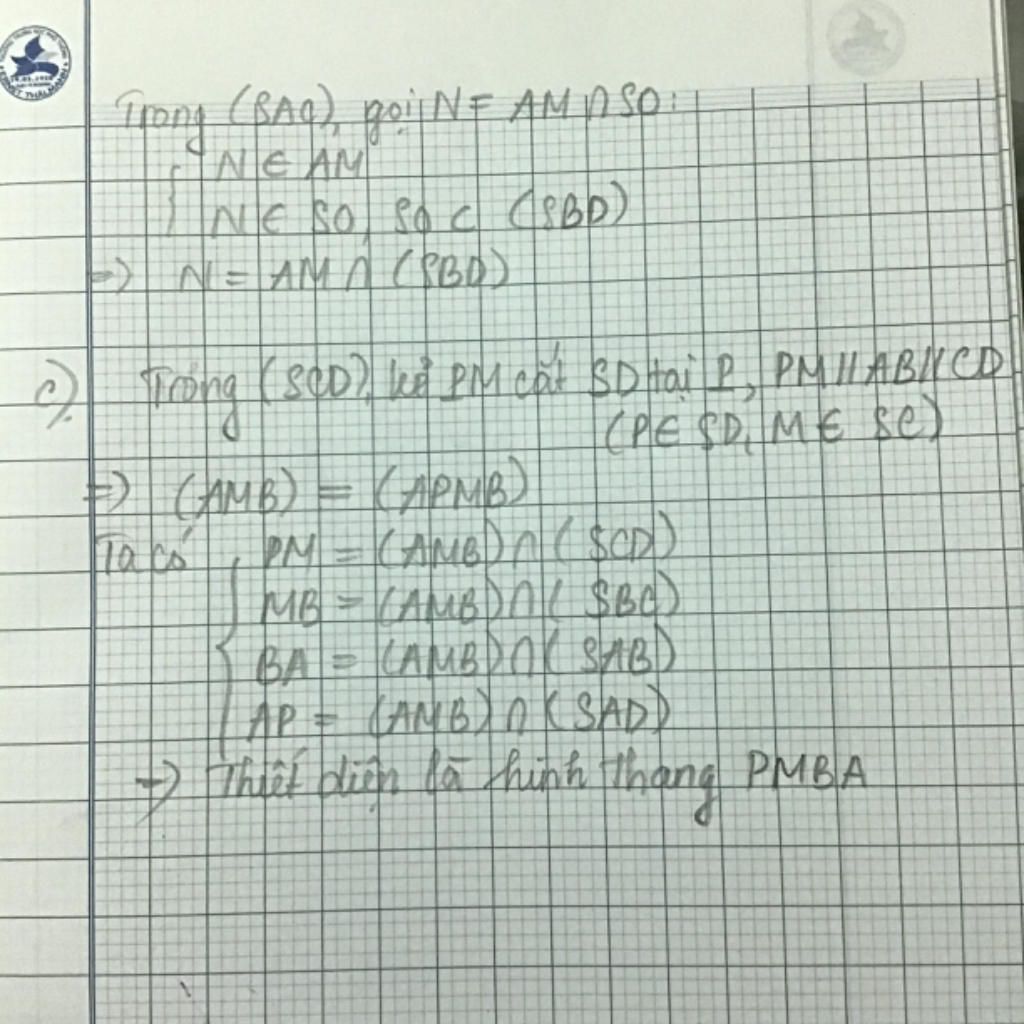 Trong (SAC), gọi N = AM ∩ SO:
N ∈ AM
N ∈ SO, SO ⊂ (SBD)
=> N = AM ∩ (SBD)
c). Trong (SCD), kẻ PM cắt SD tại P, PM // AB // CD
(P ∈ SD, M ∈ SC)
=> (AMB) = (APMB)
Ta có { PM = (AMB) ∩ (SCD)
MB = (AMB) ∩ (SBC)
BA = (AMB) ∩ (SAB)
AP = (AMB) ∩ (SAD)
-> Thiết diện là hình thang PMBA